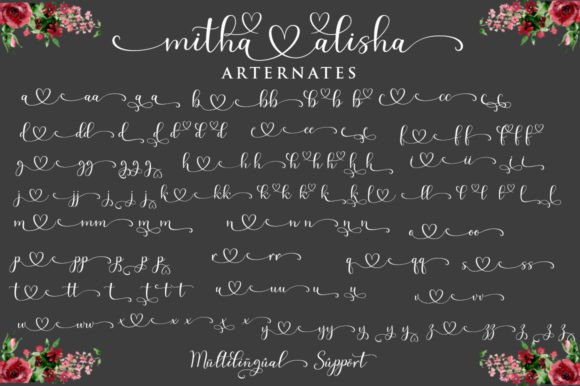 mitha alisha
ARTERNATES
a e aa a a b e bb b b b c e cc c c
d e dd d d d d d e e f e f f f f f
g e gg g g g h e h h h h h h h i e ii i i
j e jj j j j k e kk k k k k k l e ll l l l l
m e mm m m n e n n n n o e oo
p e pp p p p r e rr q e qq s e ss
t e tt t t t t u e uu u u v e vv
w e ww x e x x x x y e yy y y y z e zz z z z
Multilingual Support